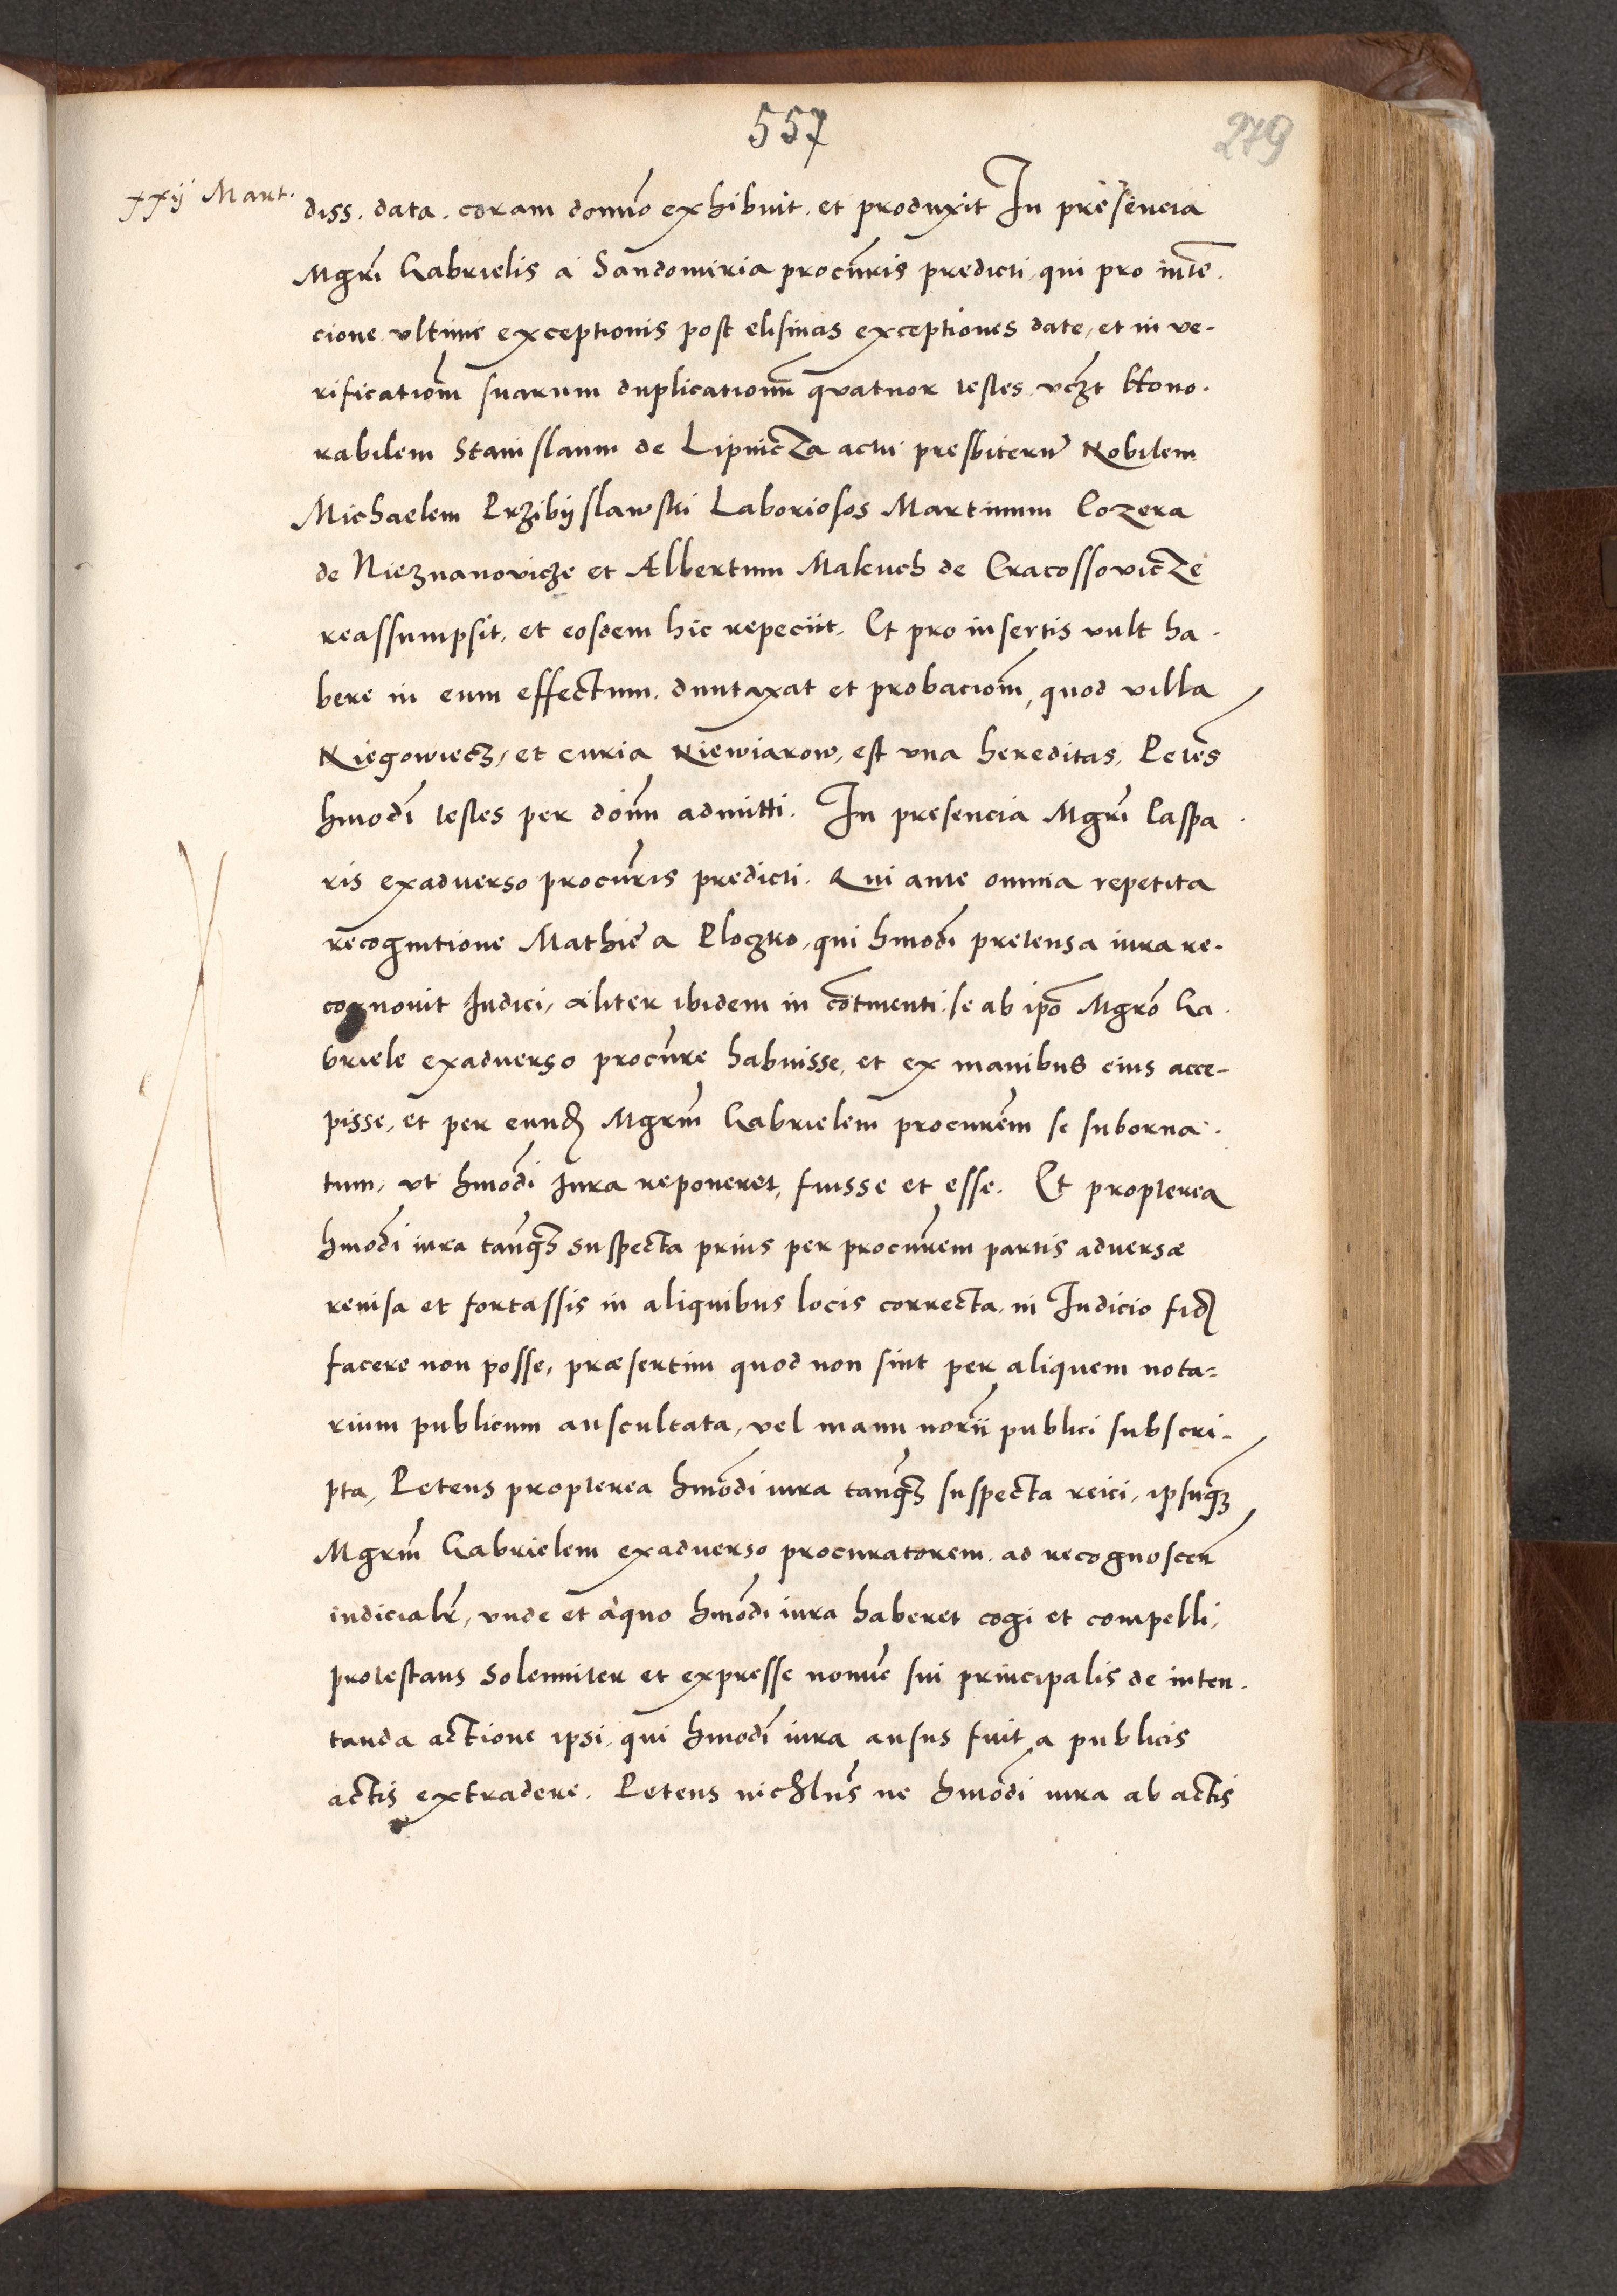 557
279
xxij Mart.
diss. data. coram domĩo exhibuit. et produxit In presencia
Mgrĩ Gabrielis a Sandomiria procũris predicti, qui pro intẽ.
cione ultime exceptionis post elisivas exceptiones date, et in ve-
rificationẽ suarum duplicationũ quatuor testes vczt Hono.
rabilem Stanislaum de Lipnicza actu presbiterũ Nobilem
Michaelem Przibÿslawski Laboriosos Martinum Cozera
de Nieznanovicze et Albertum Makuch de Cracossovicze
reassumpsit, et eosdem hic repeciit, Et pro insertis vult ha.
bere in eum effectum. duntaxat et probacionẽ, quod villa
Niegowiecz, et curia Niewiarow, est una hereditas, Petẽs
hmodi testes per dõnũ admitti. In presencia Mgrĩ Caspa.
ris exadverso procũris predicti. Qui ante omnia repetita
recognitione Mathie a Ploczko, qui hmodi pretensa iura re.
cognovit Iudici, aliter ibidem in cõtinenti se ab ipõ Mgrõ Ga.
briele exadverso procũre habuisse, et ex manibus eius acce-
pisse, et per eund Mgrm̃ Gabrielem procurẽm se suborna.
tum, ut hmodi Iura reponeret, fuisse et esse. Et propterea
hmodi iura tanq̃ suspecta prius per procurẽm partis adversæ
revisa et fortassis in aliquibus locis correcta, in Iudicio fid
facere non posse, præsertim quod non sint per aliquem nota-
rium publicum auscultata, vel manu norii publici subscri-
pta, Petens propterea hmodi iura tanq̃ suspecta reici, ipsumq̃
Mgrm̃ Gabrielem exadverso procuratorem. ad recognoscen̄
iudicialr̃, unde et a quo hmodi iura haberet cogi et compelli,
protestans Solenniter et expresse nomĩe sui principalis de inten.
tanda actione ipsi, qui hmodi iura ausus fuit a publicis
actis extradere. Petens nichlus̃ ne hmodi iura ab actis